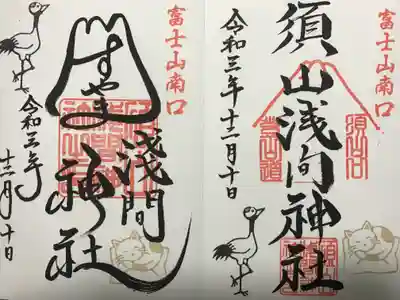 富士山南口
須山浅間神社
須山口
登山道
令和三年十二月十日
富士山南口
すやま
淺間
神社
令和三年
十二月十日